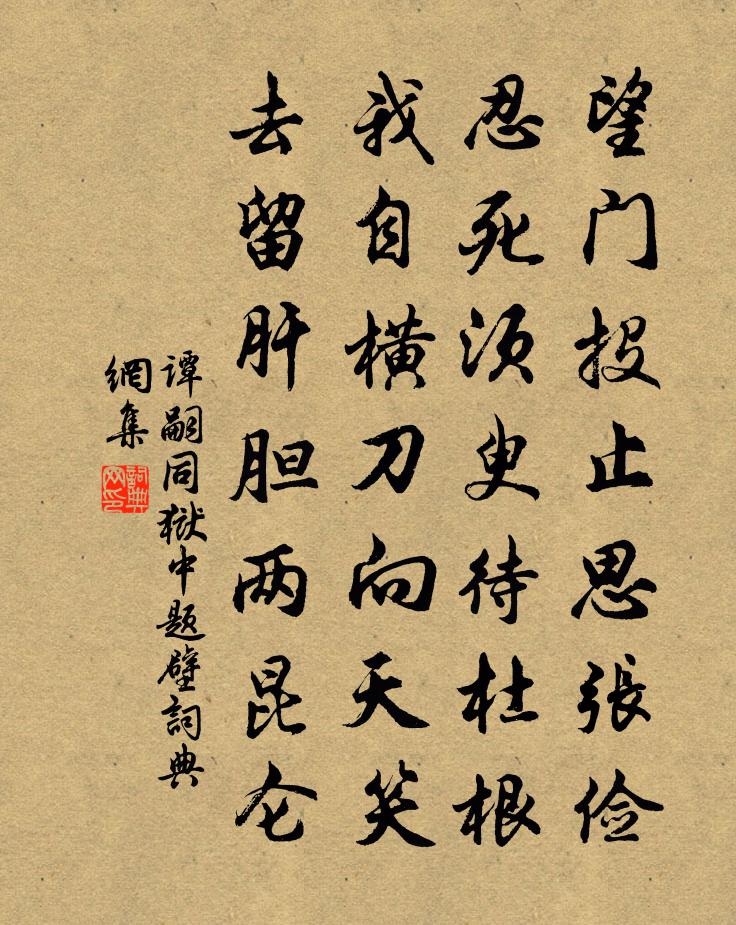 望门投止思張俭
忍死须臾待杜根
我自横刀向天笑
去留肝胆两昆仑
谭嗣同獄中题壁詞典
網集
詞典
网印